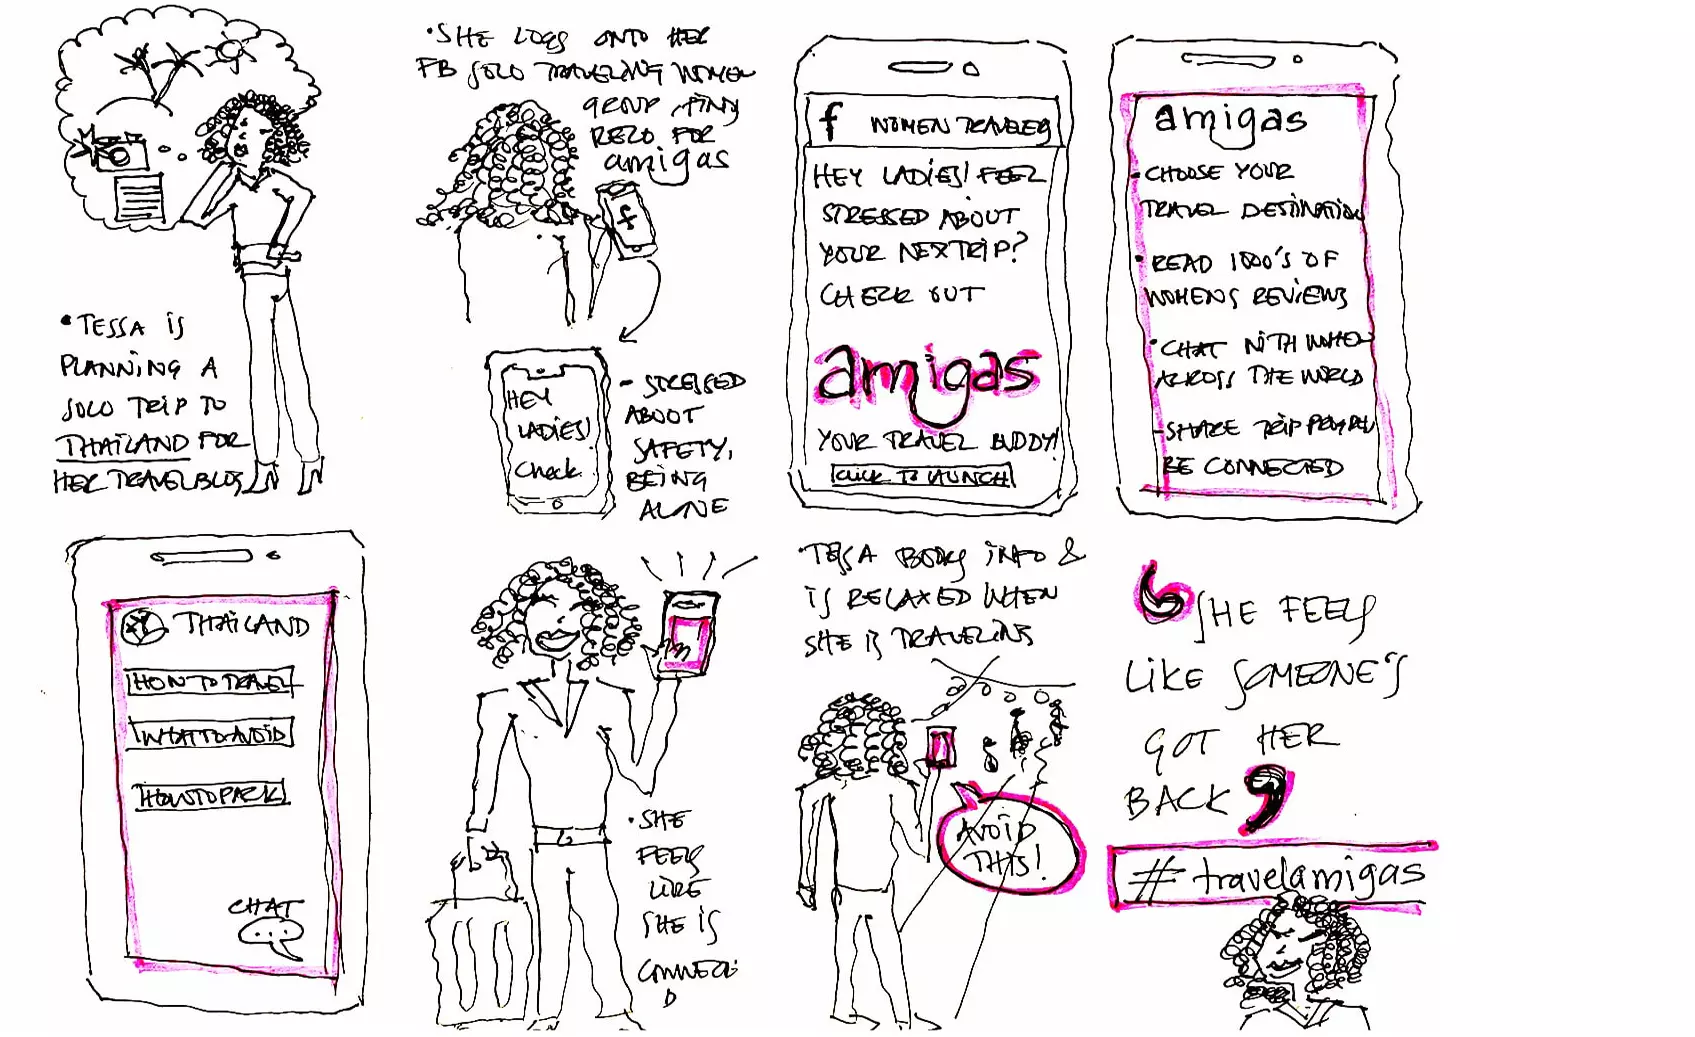 • TESSA IS
PLANNING A
SOLO TRIP TO
THAILAND FOR
HER TRAVELBLOG
• SHE LOGS ONTO HER
FB SOLO TRAVELING WOMEN
GROUP
FOR
amigas
f
HEY
LADIES!
Check
- STRESSED
ABOUT
SAFETY,
BEING
ALONE
f WOMEN TRAVELERS
HEY LADIES! FEEL
STRESSED ABOUT
YOUR NEXT TRIP?
CHECK OUT
amigas
YOUR TRAVEL BUDDY!
CLICK TO LAUNCH
amigas
• CHOOSE YOUR
TRAVEL DESTINATION
• READ 1000'S OF
WOMENS REVIEWS
• CHAT WITH WOMEN
ACROSS THE WORLD
- SHARE TRIP
BE CONNECTED
THAILAND
HOW TO TRAVEL
WHAT TO AVOID
HOW TO PACK
CHAT
...
• SHE
FEELS
LIKE
SHE IS
CONNECTE
D
• TESSA BOOKS INFO &
IS RELAXED WHEN
SHE IS TRAVELING
AVOID
THIS!
SHE FEELS
LIKE SOMEONE'S
GOT HER
BACK
#travelamigas